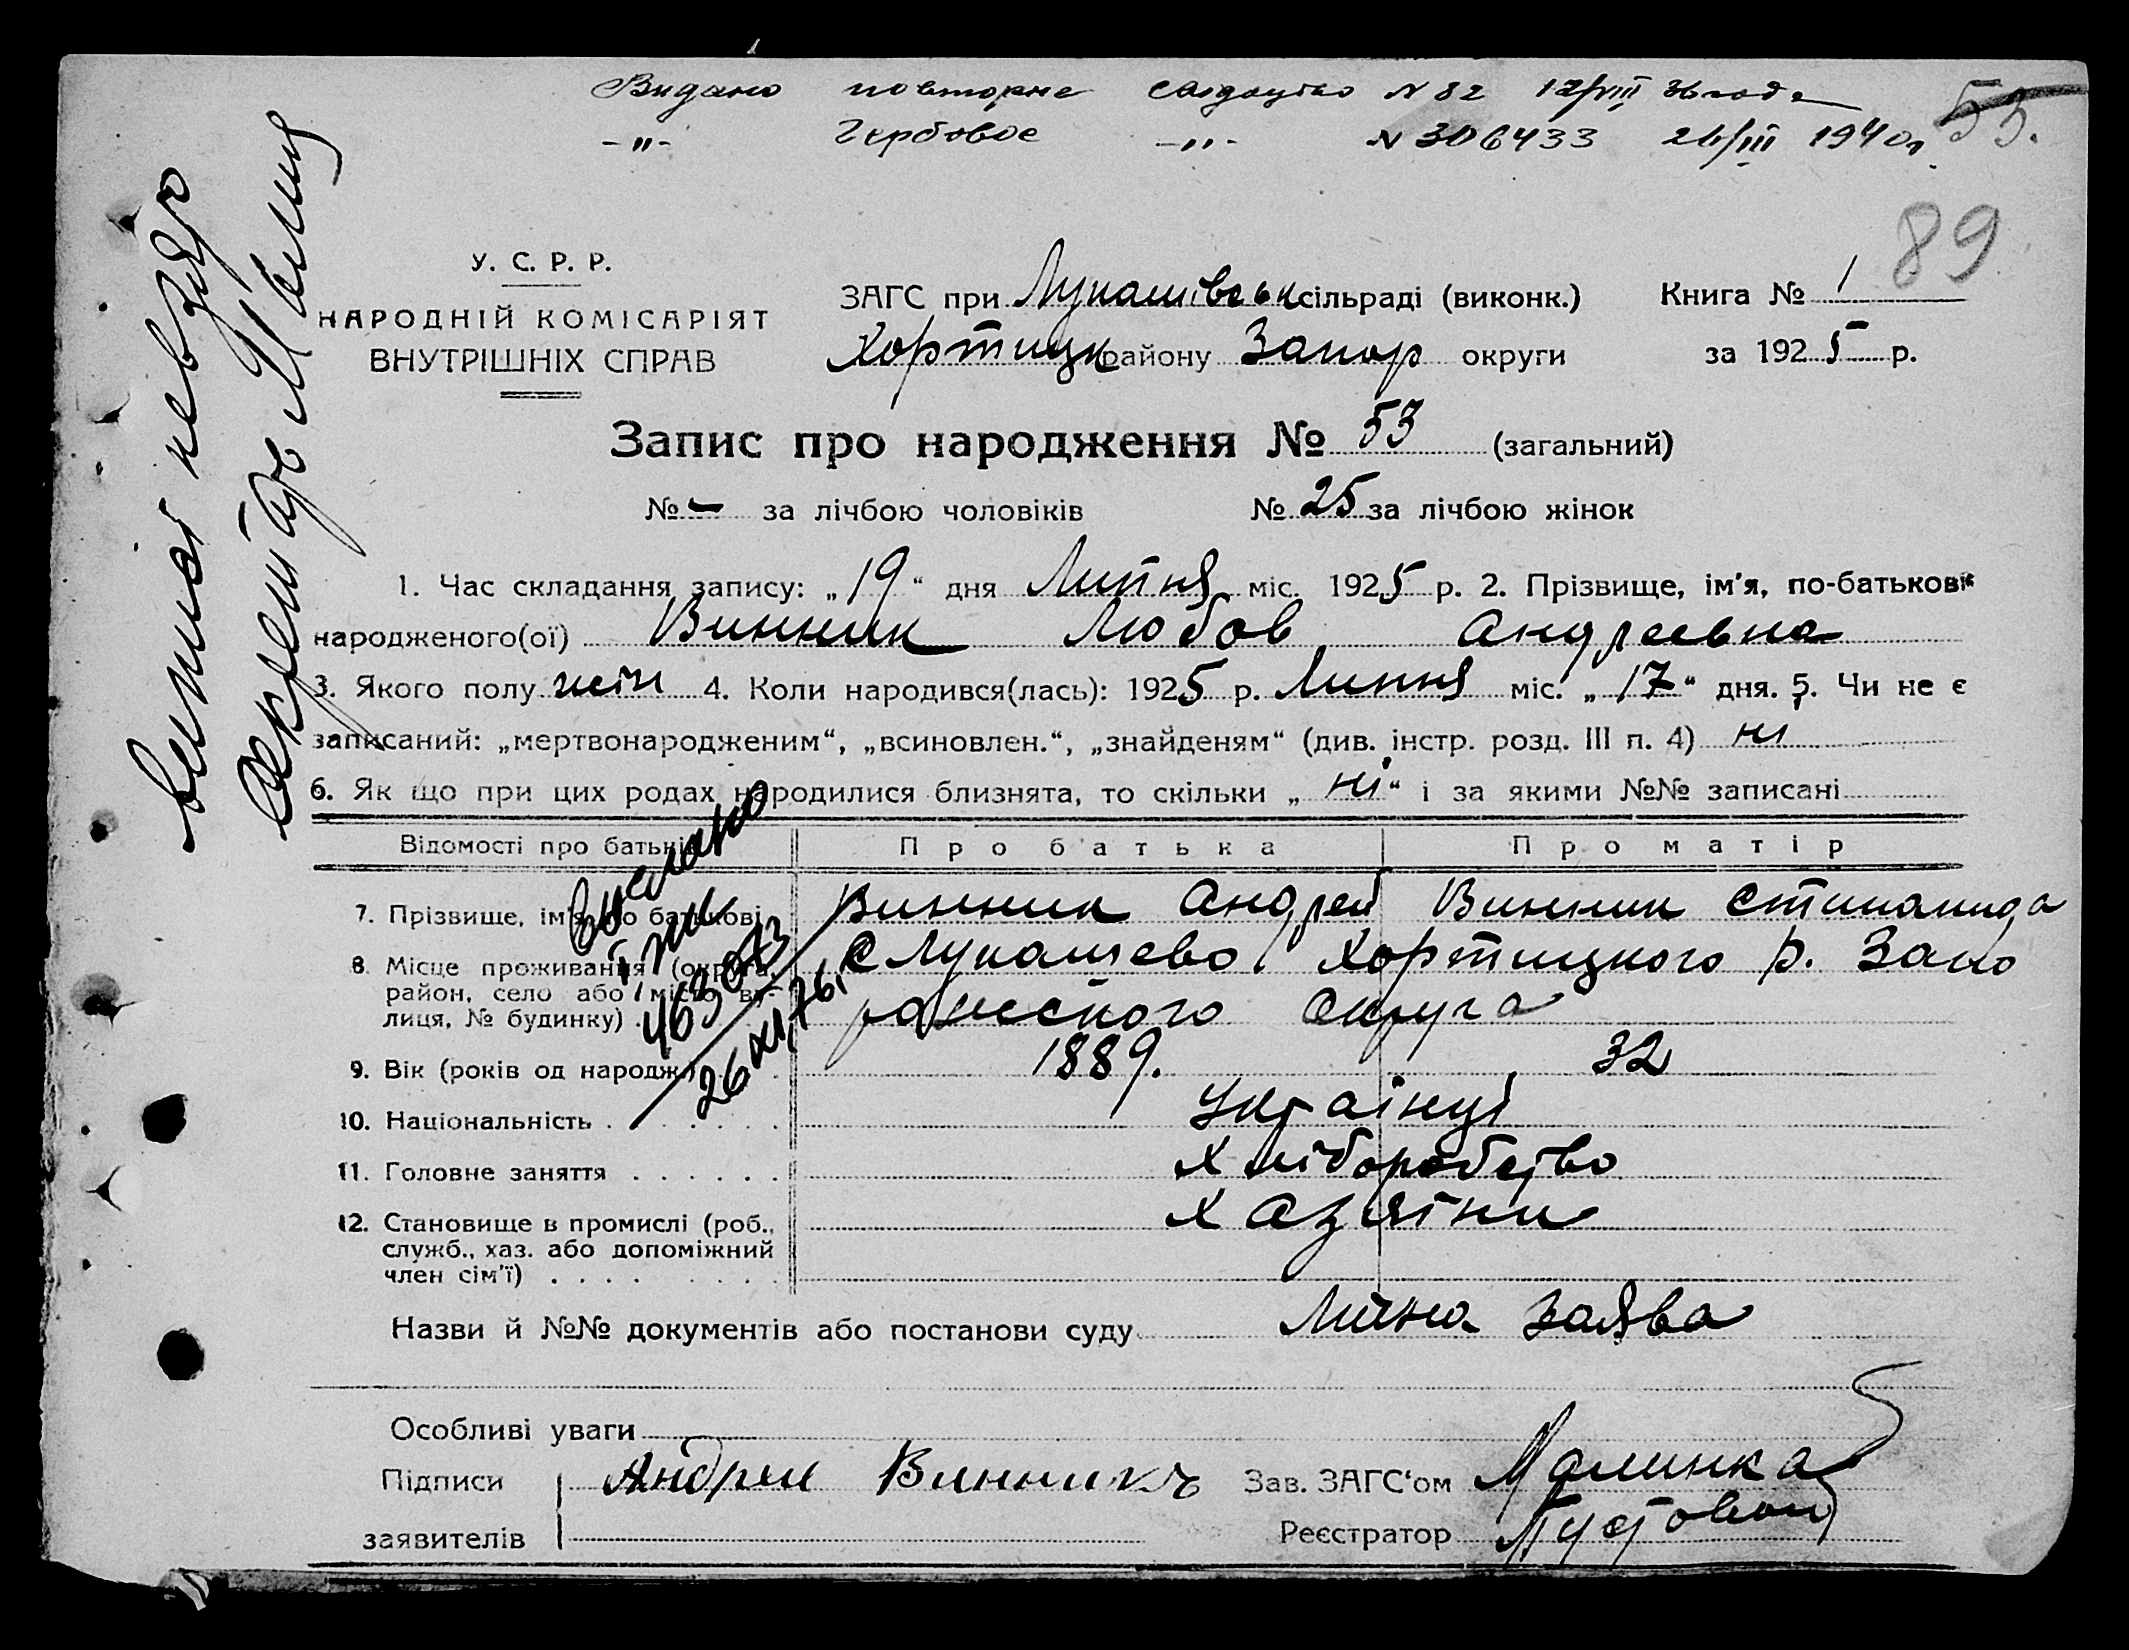 Видано повторне свідоцтво N 82 17/VIII 36 года
-"- Гербовое -"- N 306433 26/III 1940 г. 53.
89
У. С. Р. Р.
НАРОДНІЙ КОМІСАРІЯТ
ВНУТРІШНІХ СПРАВ
ЗАГС при Лукашівськ сільраді (виконк.) Книга № 1
Хортицьк району Запор округи за 1925 р.
Запис про народження № 53 (загальний)
№ - за лічбою чоловіків № 25 за лічбою жінок
1. Час складання запису: „19“ дня Липня міс. 1925 р. 2. Прізвище, ім'я, по-батькові
народженого(ої) Винник Любов Андреевна
3. Якого полу жін 4. Коли народився(лась): 1925 р. Липня міс. „17“ дня. 5. Чи не є
записаний: „мертвонародженим“, „всиновлен.“, „знайденям“ (див. інстр. розд. III п. 4) ні
6. Як що при цих родах народилися близнята, то скільки „ні“ і за якими №№ записані
Відомості про батьків Про батька Про матір
7. Прізвище, ім'я, по батькові Винник Андрей Винник Степанида
8. Місце проживання (округа, район, село або місто, ву- лиця, № будинку) с Лукашево Хортицкого р. Запо
рожского округа
9. Вік (років од народж.) 1889. 32
10. Національність Українці
11. Головне заняття Хліборобство
12. Становище в промислі (роб., Хазяїни
служб., хаз. або допоміжний
член сім'ї)
Назви й №№ документів або постанови суду Лична заява
Особливі уваги
Підписи Андрей Винникъ Зав. ЗАГС'ом Малинка
заявителів Реєстратор Пустовой
витяг не взято
Секретарь
выслано
463073
26 XI, 76,